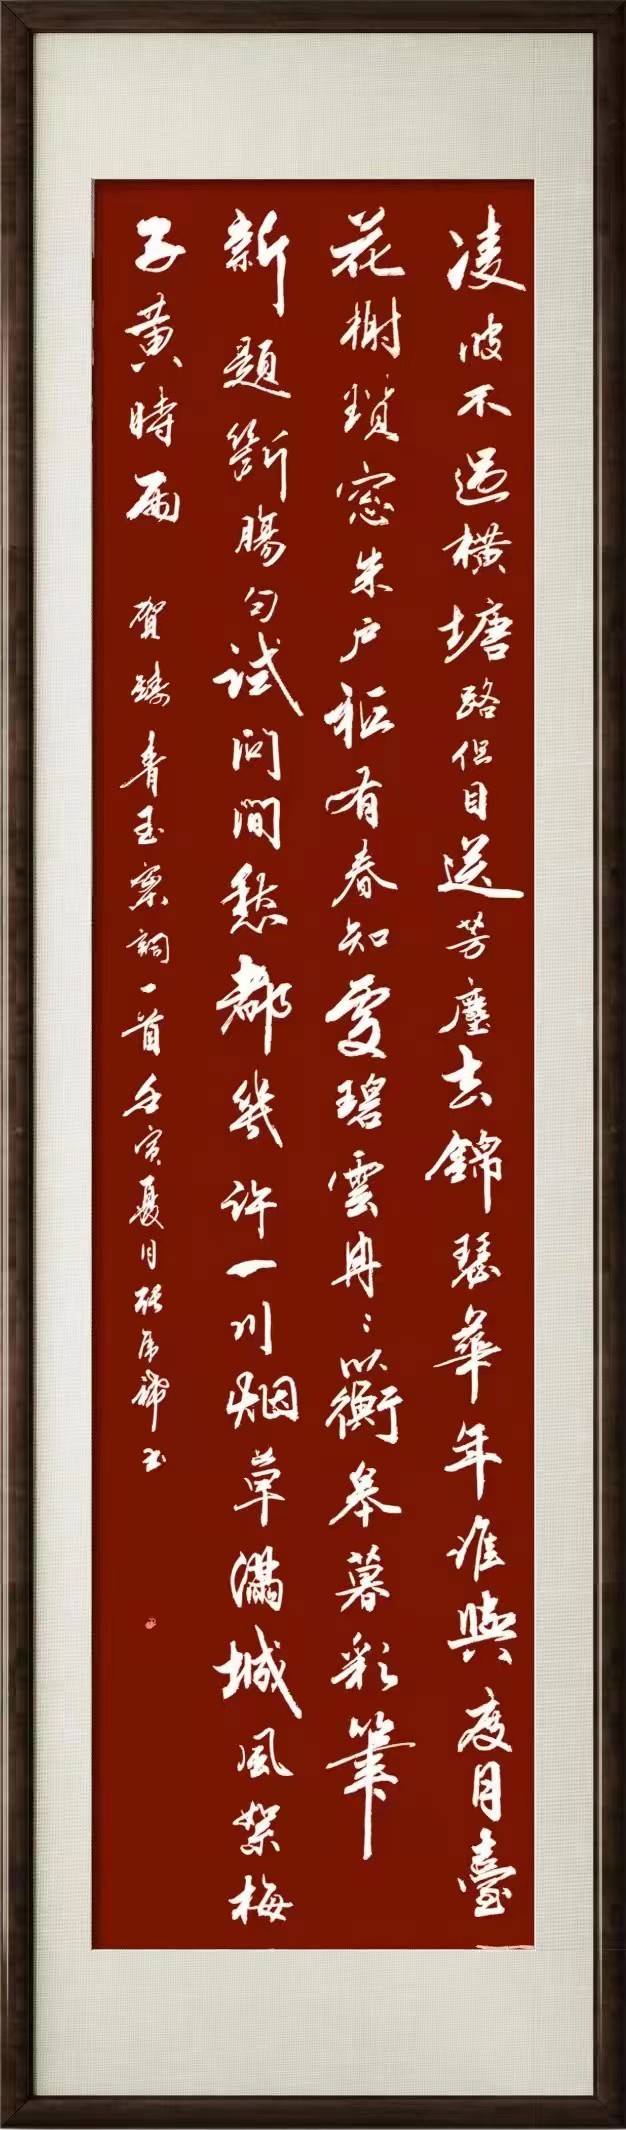 凌波不過橫塘路但目送芳塵去錦瑟華年誰與度月臺
花榭瑣窓朱户祗有春知處碧雲冉〻以蘅皋暮彩筆
新題斷腸句試问閒愁都幾许一川烟草滿城風絮梅
子黄時雨
贺鑄青玉案詞一首壬寅夏月張